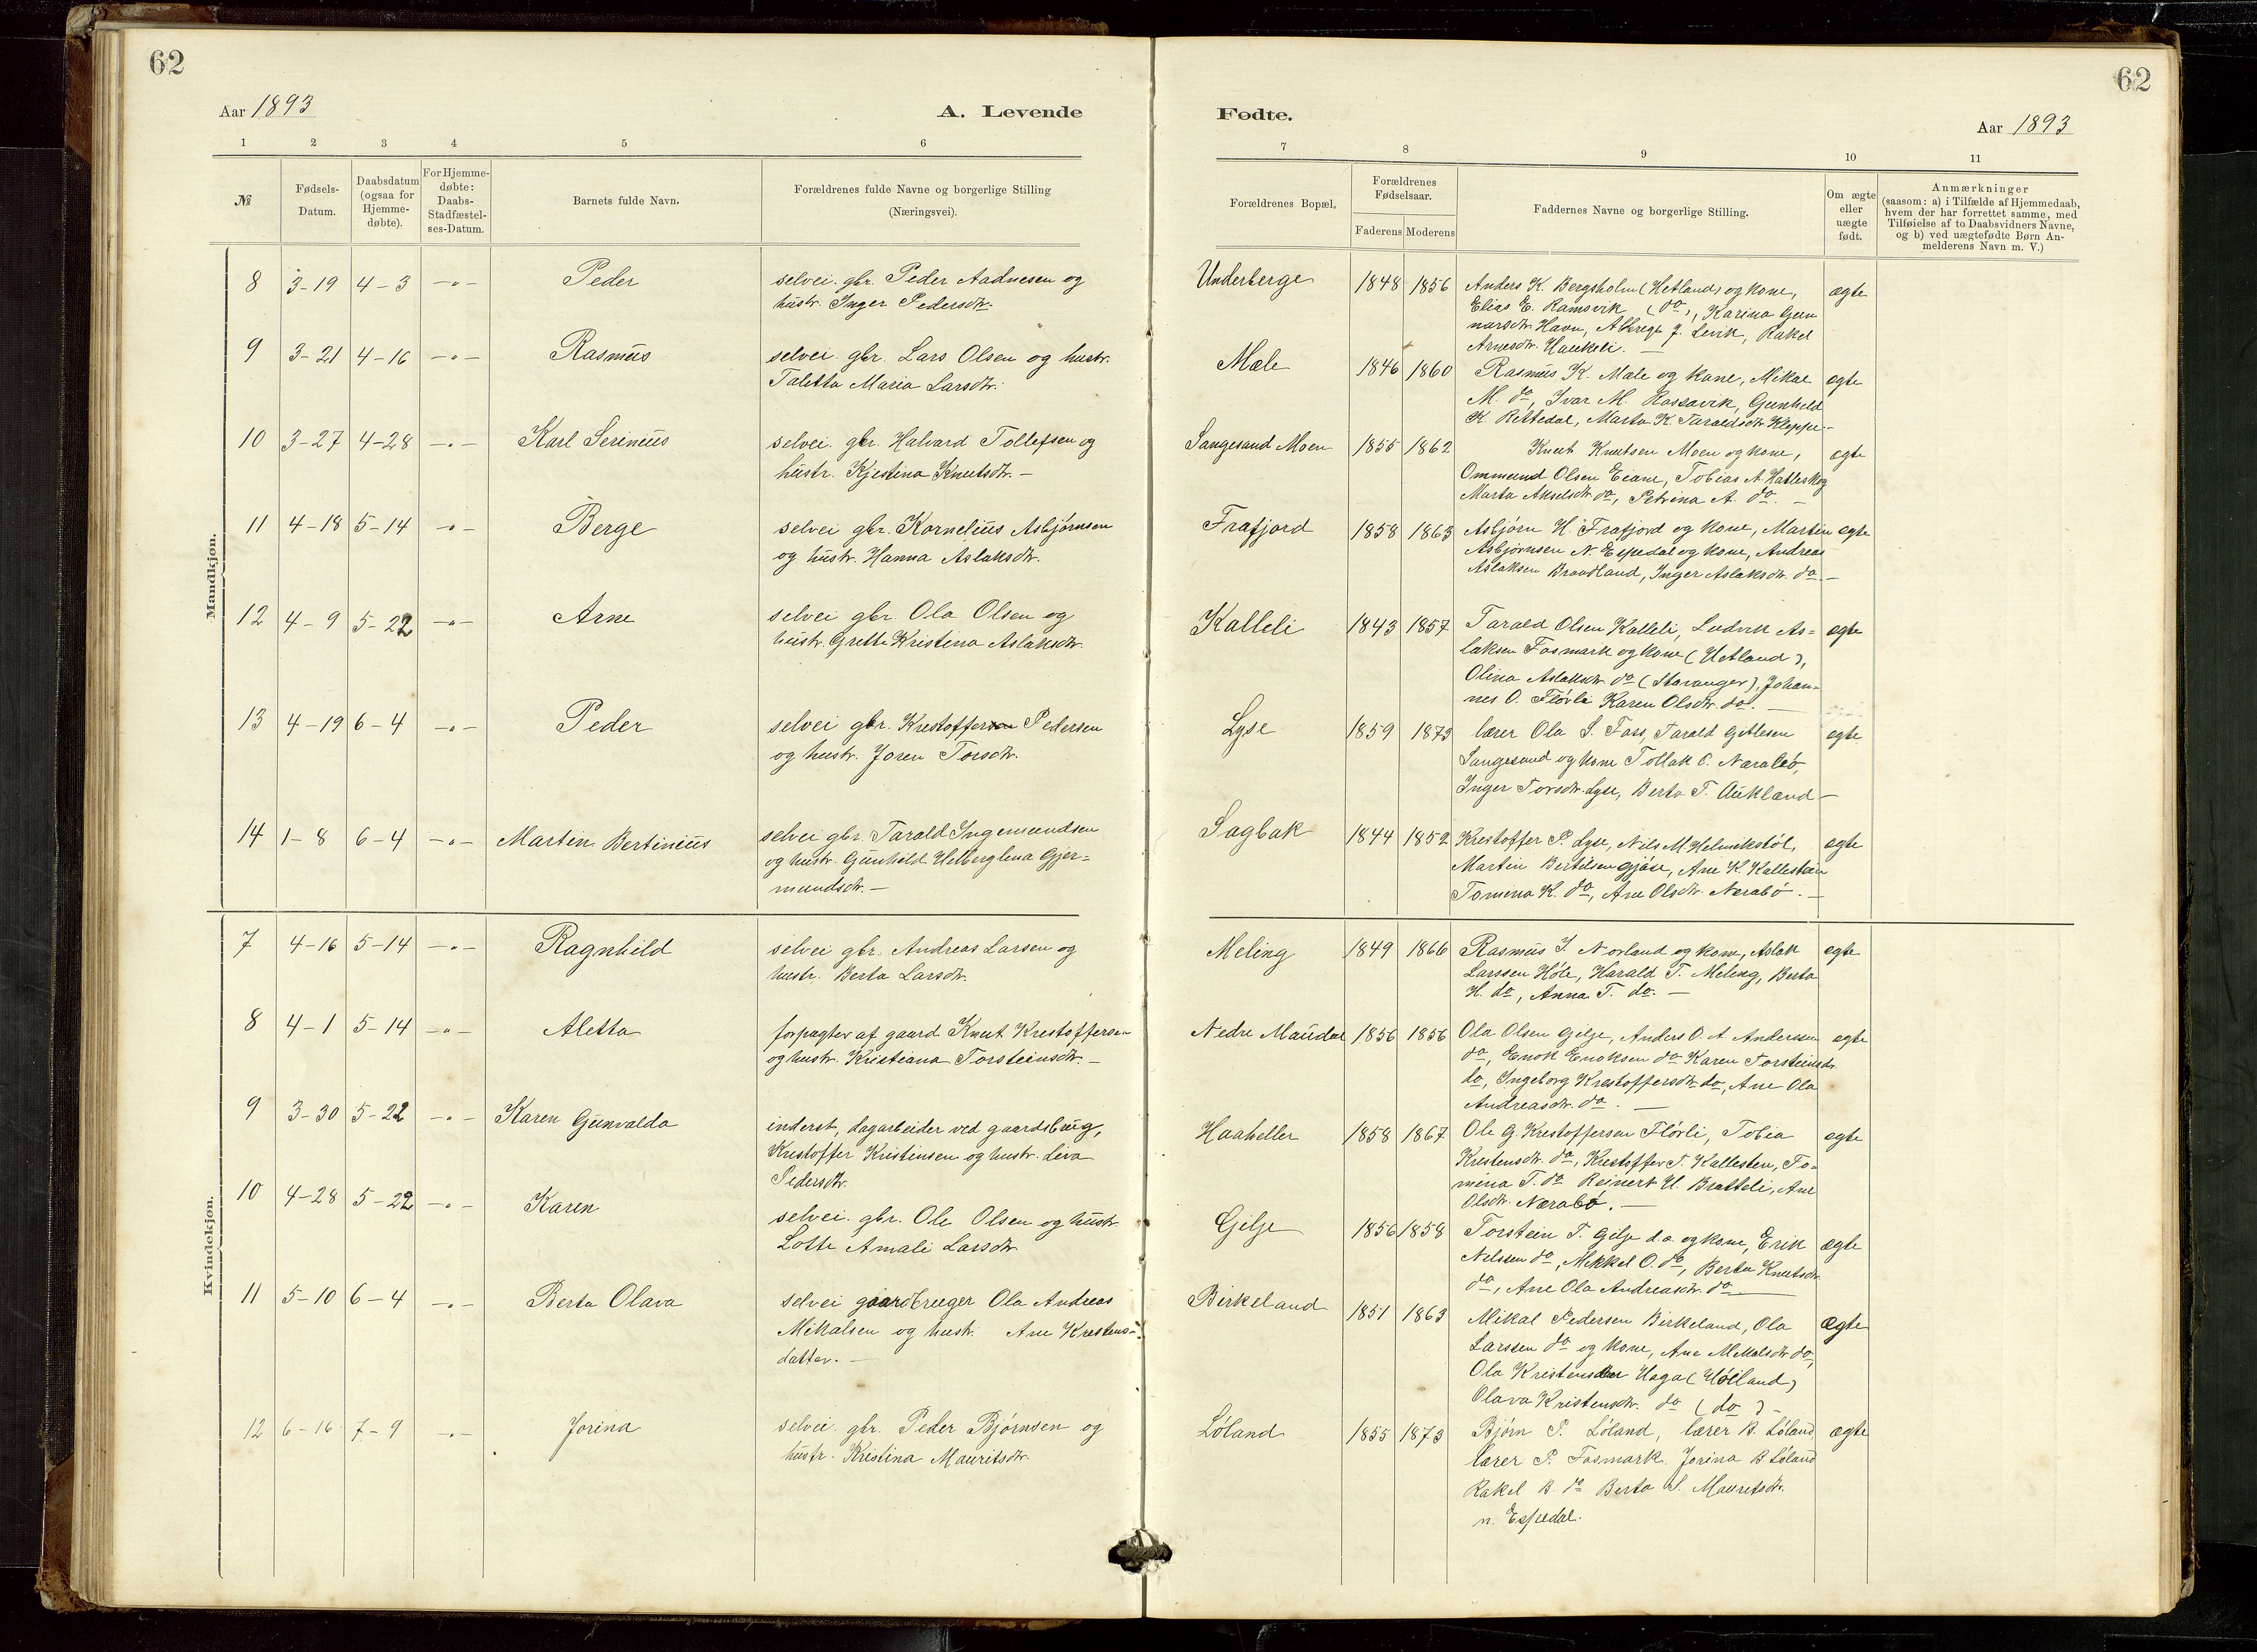 62
Aar 1893
A. Levende
1 2 3 4 5 6
№
Fødsels-
Datum.
Daabsdatum
(ogsaa for
Hjemme-
døbte).
For Hjemme-
døbte:
Daabs-
Stadfæstel-
ses-Datum.
Barnets fulde Navn.
Forældrenes fulde Navne og borgerlige Stilling
(Næringsvei).
Mandkjøn.
8 3-19 4-3 -"- Peder
selvei. gbr. Peder Aadnesen og
hustr. Inger Pedersdtr.
9 3-21 4-16 -"- Rasmus
selvei. gbr. Lars Olsen og hustr.
Taletta Maria Larsdtr.
10 3-27 4-28 -"- Karl Serinius
selvei. gbr. Halvard Tollefsen og
hustr. Kjestina Knutsdtr. -
11 4-18 5-14 -"- Berge
selvei gbr. Kornelius Asbjørnsen
og hustr. Hanna Aslaksdtr.
12 4-9 5-22 -"- Arne
selvei gbr. Ola Olsen og
hustr. Grethe Kristena Aslaksdtr.
13 4-19 6-4 -"- Peder
selvei gbr. Krestoffer Pedersen
og hustr. Joren Torsdtr.
14 1-8 6-4 -"- Martin Bertinius
selvei gbr. Tarald Ingemundsen
og hustr. Gunhild Gjer=
mundsdtr. -
Kvindekjøn.
7 4-16 5-14 -"- Ragnhild
selvei gbr. Andreas Larsen og
hustr. Berta Larsdtr.
8 4-1 5-14 -"- Aletta
forpagter af gaard Knut Krestoffersen
og hustr. Kristiana Torsteinsdtr. -
9 3-30 5-22 -"- Karen Gunvalda
inderst, dagarbeider ved gaardsbrug,
Krestoffer Kristensen og hustr. Leva
Pedersdtr.
10 4-28 5-22 -"- Karen
selvei. gbr. Ole Olsen og hustr.
Lotte Amali Larsdtr.
11 5-10 6-4 -"- Berta Olava
selvei gaardbruger Ola Andreas
Mikalsen og hustr. Ane Krestens-
datter. -
12 6-16 7-9 -"- Jorina
selvei. gbr. Peder Bjørnsen og
hustr. Kristina Mauritsdtr.
62
Fødte.
Aar 1893
7 8 9 10 11
Forældrenes Bopæl.
Forældrenes
Fødselsaar.
Faderens Moderens
Faddernes Navne og borgerlige Stilling.
Om ægte
eller
uægte
født.
Anmærkninger
(saasom: a) i Tilfælde af Hjemmedaab,
hvem der har forrettet samme, med
Tilføielse af to Daabsvidners Navne,
og b) ved uægtefødte Børn An-
melderens Navn m. V.)
Underberge 1848 1856 Anders K. Bergsholm (Hetland) og kone, ægte
Elias E. Ramsvik (do), Karina Gun
narsdtr. Havn, J. Levik, Rakel
Arnesdtr. Haukeli. -
Mæle 1846 1860 Rasmus K. Mæle og kone, Mikal egte
M. do, Ivar M. Rossavik, Gunhild
K. Rettedal, Marta K. Taraldsdtr. Kleppe -
Songesand Moen 1855 1862 Knut Knutsen Moen og kone, egte
Ommund Olsen Eiane, Tobias A. Hatleskog
Marta Akselsdtr. do, Petrina A. do. -
Frafjord 1858 1863 Asbjørn H. Frafjord og kone, Martin egte
Asbjørnsen N. Espedal og kone, Andreas
Aslaksen Brandland, Inger Aslaksdtr. do. -
Kalleli 1843 1857 Tarald Olsen Kalleli, Ludvik As= egte
laksen Fosmark og kone (Hetland),
Olina Aslaksdtr. do (Stavanger), Johan-
nes O. Fløvli Karen Olsdtr. do. -
Lyse 1859 1873 lærer Ola S. Foss, Tarald Gitlesen egte
Songesand og kone Tollak O. Nærabø,
Inger Torsdtr. Lyse, Berta T. Aukland -
Sagbak 1844 1852 Krestoffer P. Lyse, Nils M Helmikstøl, egte
Martin Bertilsen Gjøse, Ane K. Kallestein
Tomina K. do, Ane Olsdtr. Nærabø. -
Meling 1849 1866 Rasmus I. Norland og kone, Aslak egte
Larssen Høle, Harald T. Meling, Berta
H. do, Anna T. do. -
Nedre Maudal 1856 1856 Ola Olsen Gilje, Anders O. A Anderssen egte
do, Enok Enoksen do Karen Torsteinsdtr.
do, Ingeborg Krestoffersdtr do, Ane Ola
Andreasdtr. do. -
Haaheller 1858 1867 Ole G. Krestoffersen Fløvli, Tobia egte
Krestensdtr. do, Krestoffer T. Kallesten, To-
mina T. do Reinert H. Bratteli, Ane
Olsdtr. Nærabø. -
Gilje 1856 1858 Torstein T. Gilje d.o. og kone, Erik ægte
Nilssen do, Mikkel O. do, Berta Knutsdtr.
do, Ane Ola Andreasdtr. do
Birkeland 1851 1863 Mikal Pedersen Birkeland, Ola Ægte
Larssen do og kone, Ane Mikalsdtr do,
Ola Kristensen Haga (Høiland)
Olava Kristensdtr. do (do) -
Løland 1855 1873 Bjørn P. Løland, lærer B. Løland ægte
lærer P. Fosmark. Jorina B Løland
Rakel B. do Berta S. Mauritsdtr.
n. Espedal.